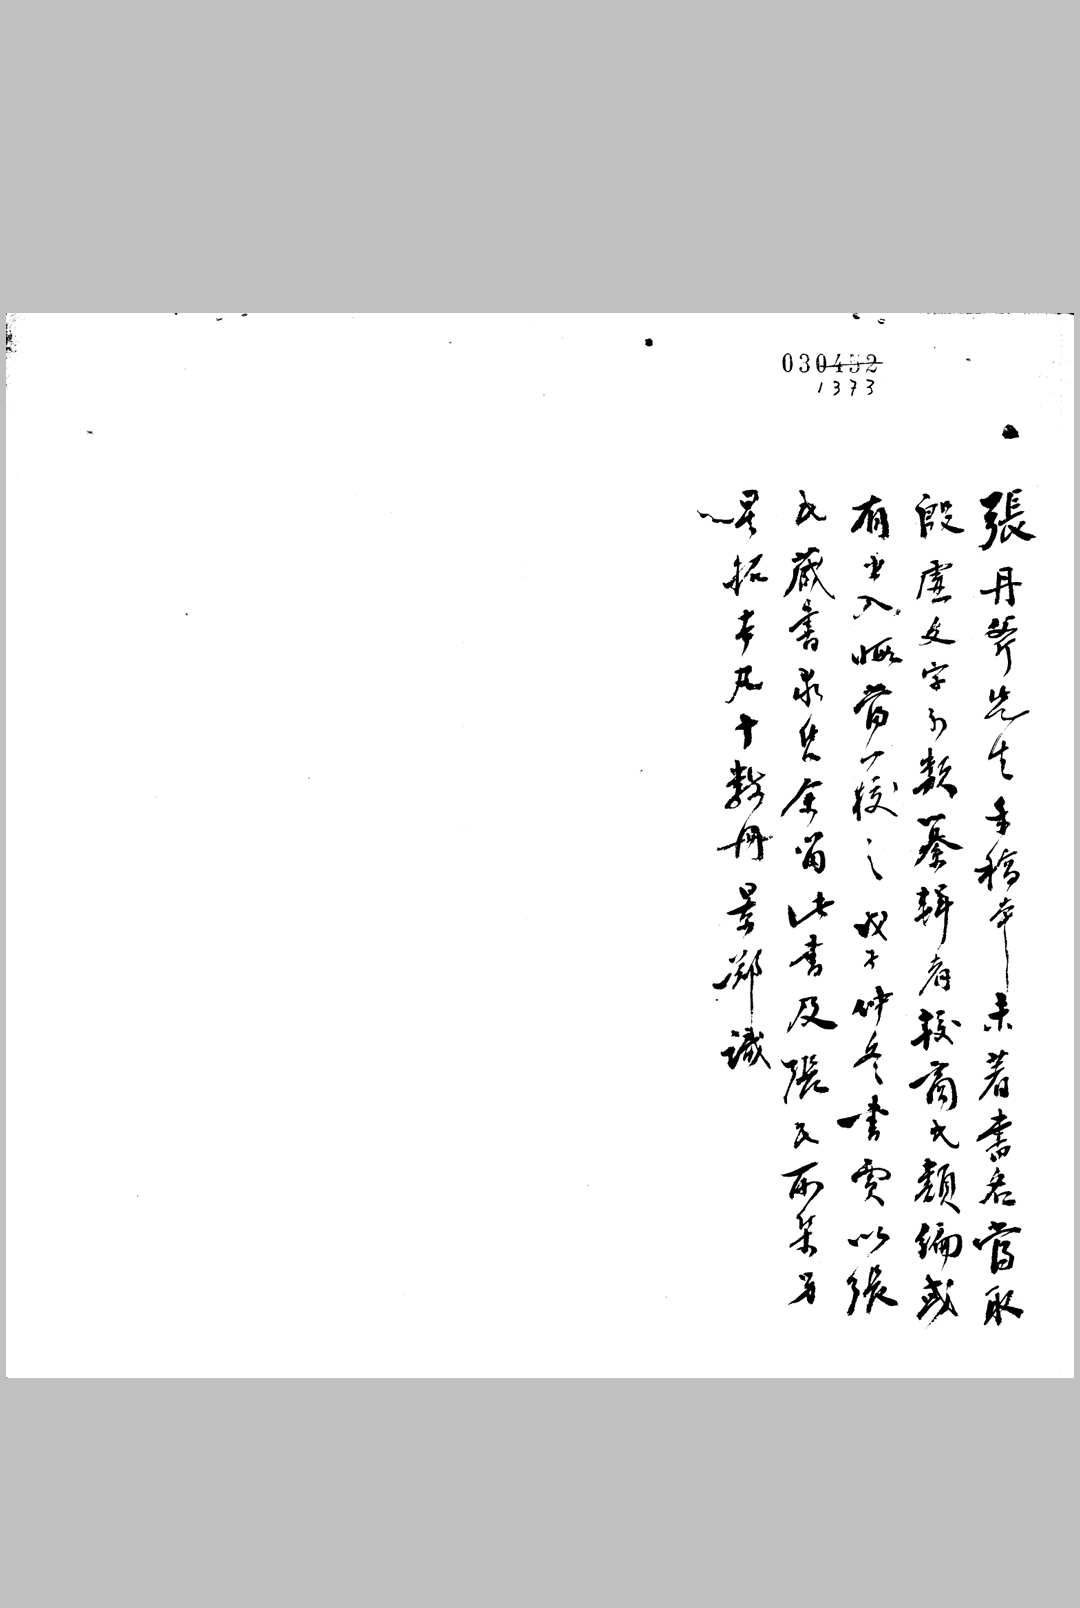 030452
1373
張丹斧先生手稿本未著書名當取
殷虛文字分類纂輯者較商氏類編或
有出入暇當一校之戊子仲冬書賈以張
氏藏書求售余留此書及張氏所集名
星拓本凡十數冊景鄭識